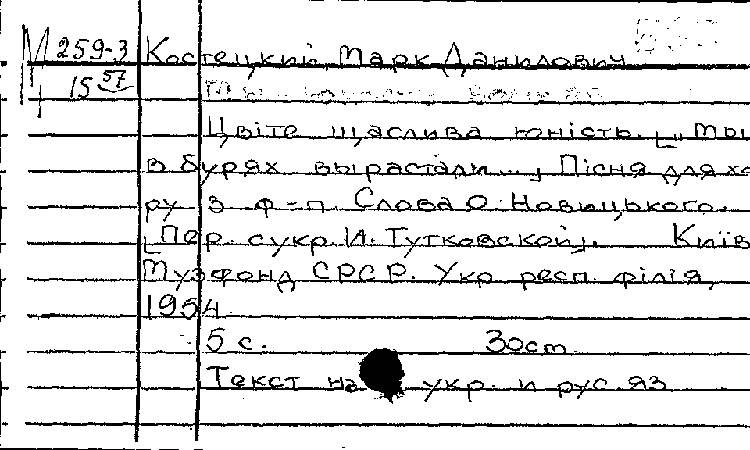 М 259-3 Костецкий, Марк Данилович
15 57
Цвіте щаслива юність. [„Мы
в бурях вырастали...„ Пісня для хо
ру з ф-п. Слова О. Новицького.
[Пер. с укр. И. Тутковской]. Київ
Музфонд СРСР. Укр респ. філія,
1954
5 с. 30 cm
Текст на укр. и рус. яз